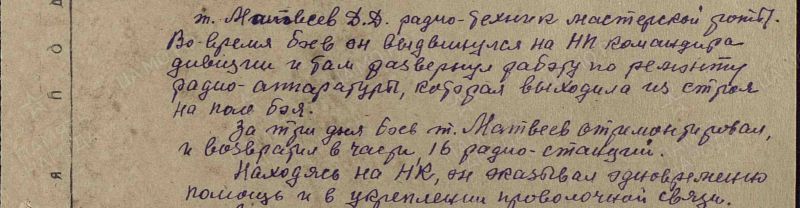 т. Матвеев Д.Д. радио-техник мастерской роты.
Во-время боев он выдвинулся на НП командира
дивизии и там развернул работу по ремонту
радио-аппаратуры, которая выходила из строя
на поле боя.
За три дня боев т. Матвеев отримонтировал,
и возвратил в части, 16 радио-станций.
Находясь на НК, он оказывал одновременно
помощь и в укреплении проволочной связи.